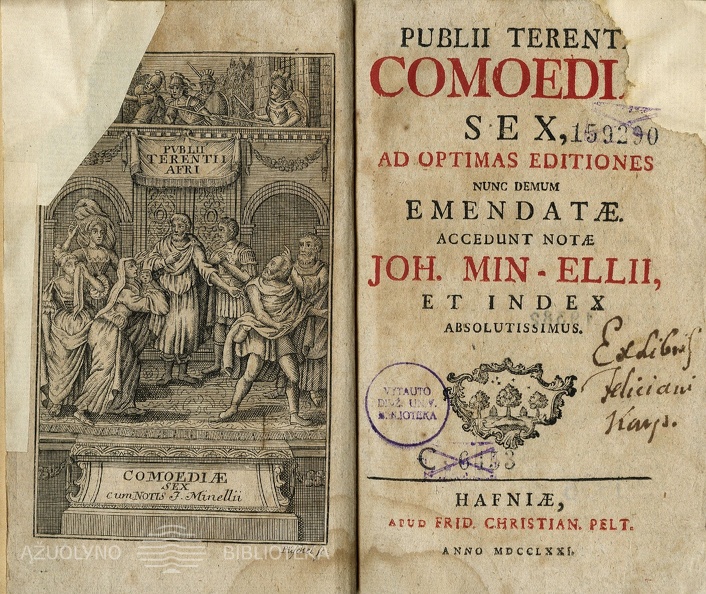 PUBLII
TERENTII
AFRI
COMOEDIÆ
SEX
cum NOTIS J. Minellii
AZUOLYNO BIBLIOTEKA
PUBLII TERENT
COMOEDI
SEX,
159290
AD OPTIMAS EDITIONES
NUNC DEMUM
EMENDATÆ.
ACCEDUNT NOTÆ
JOH. MIN-ELLII,
ET INDEX
ABSOLUTISSIMUS.
Ex Libris
Feliciani
VYTAUTO
DIDŽ. UN-V.
BIBLIOTEKA
HAFNIÆ,
APUD FRID. CHRISTIAN. PELT.
ANNO MDCCLXXI.